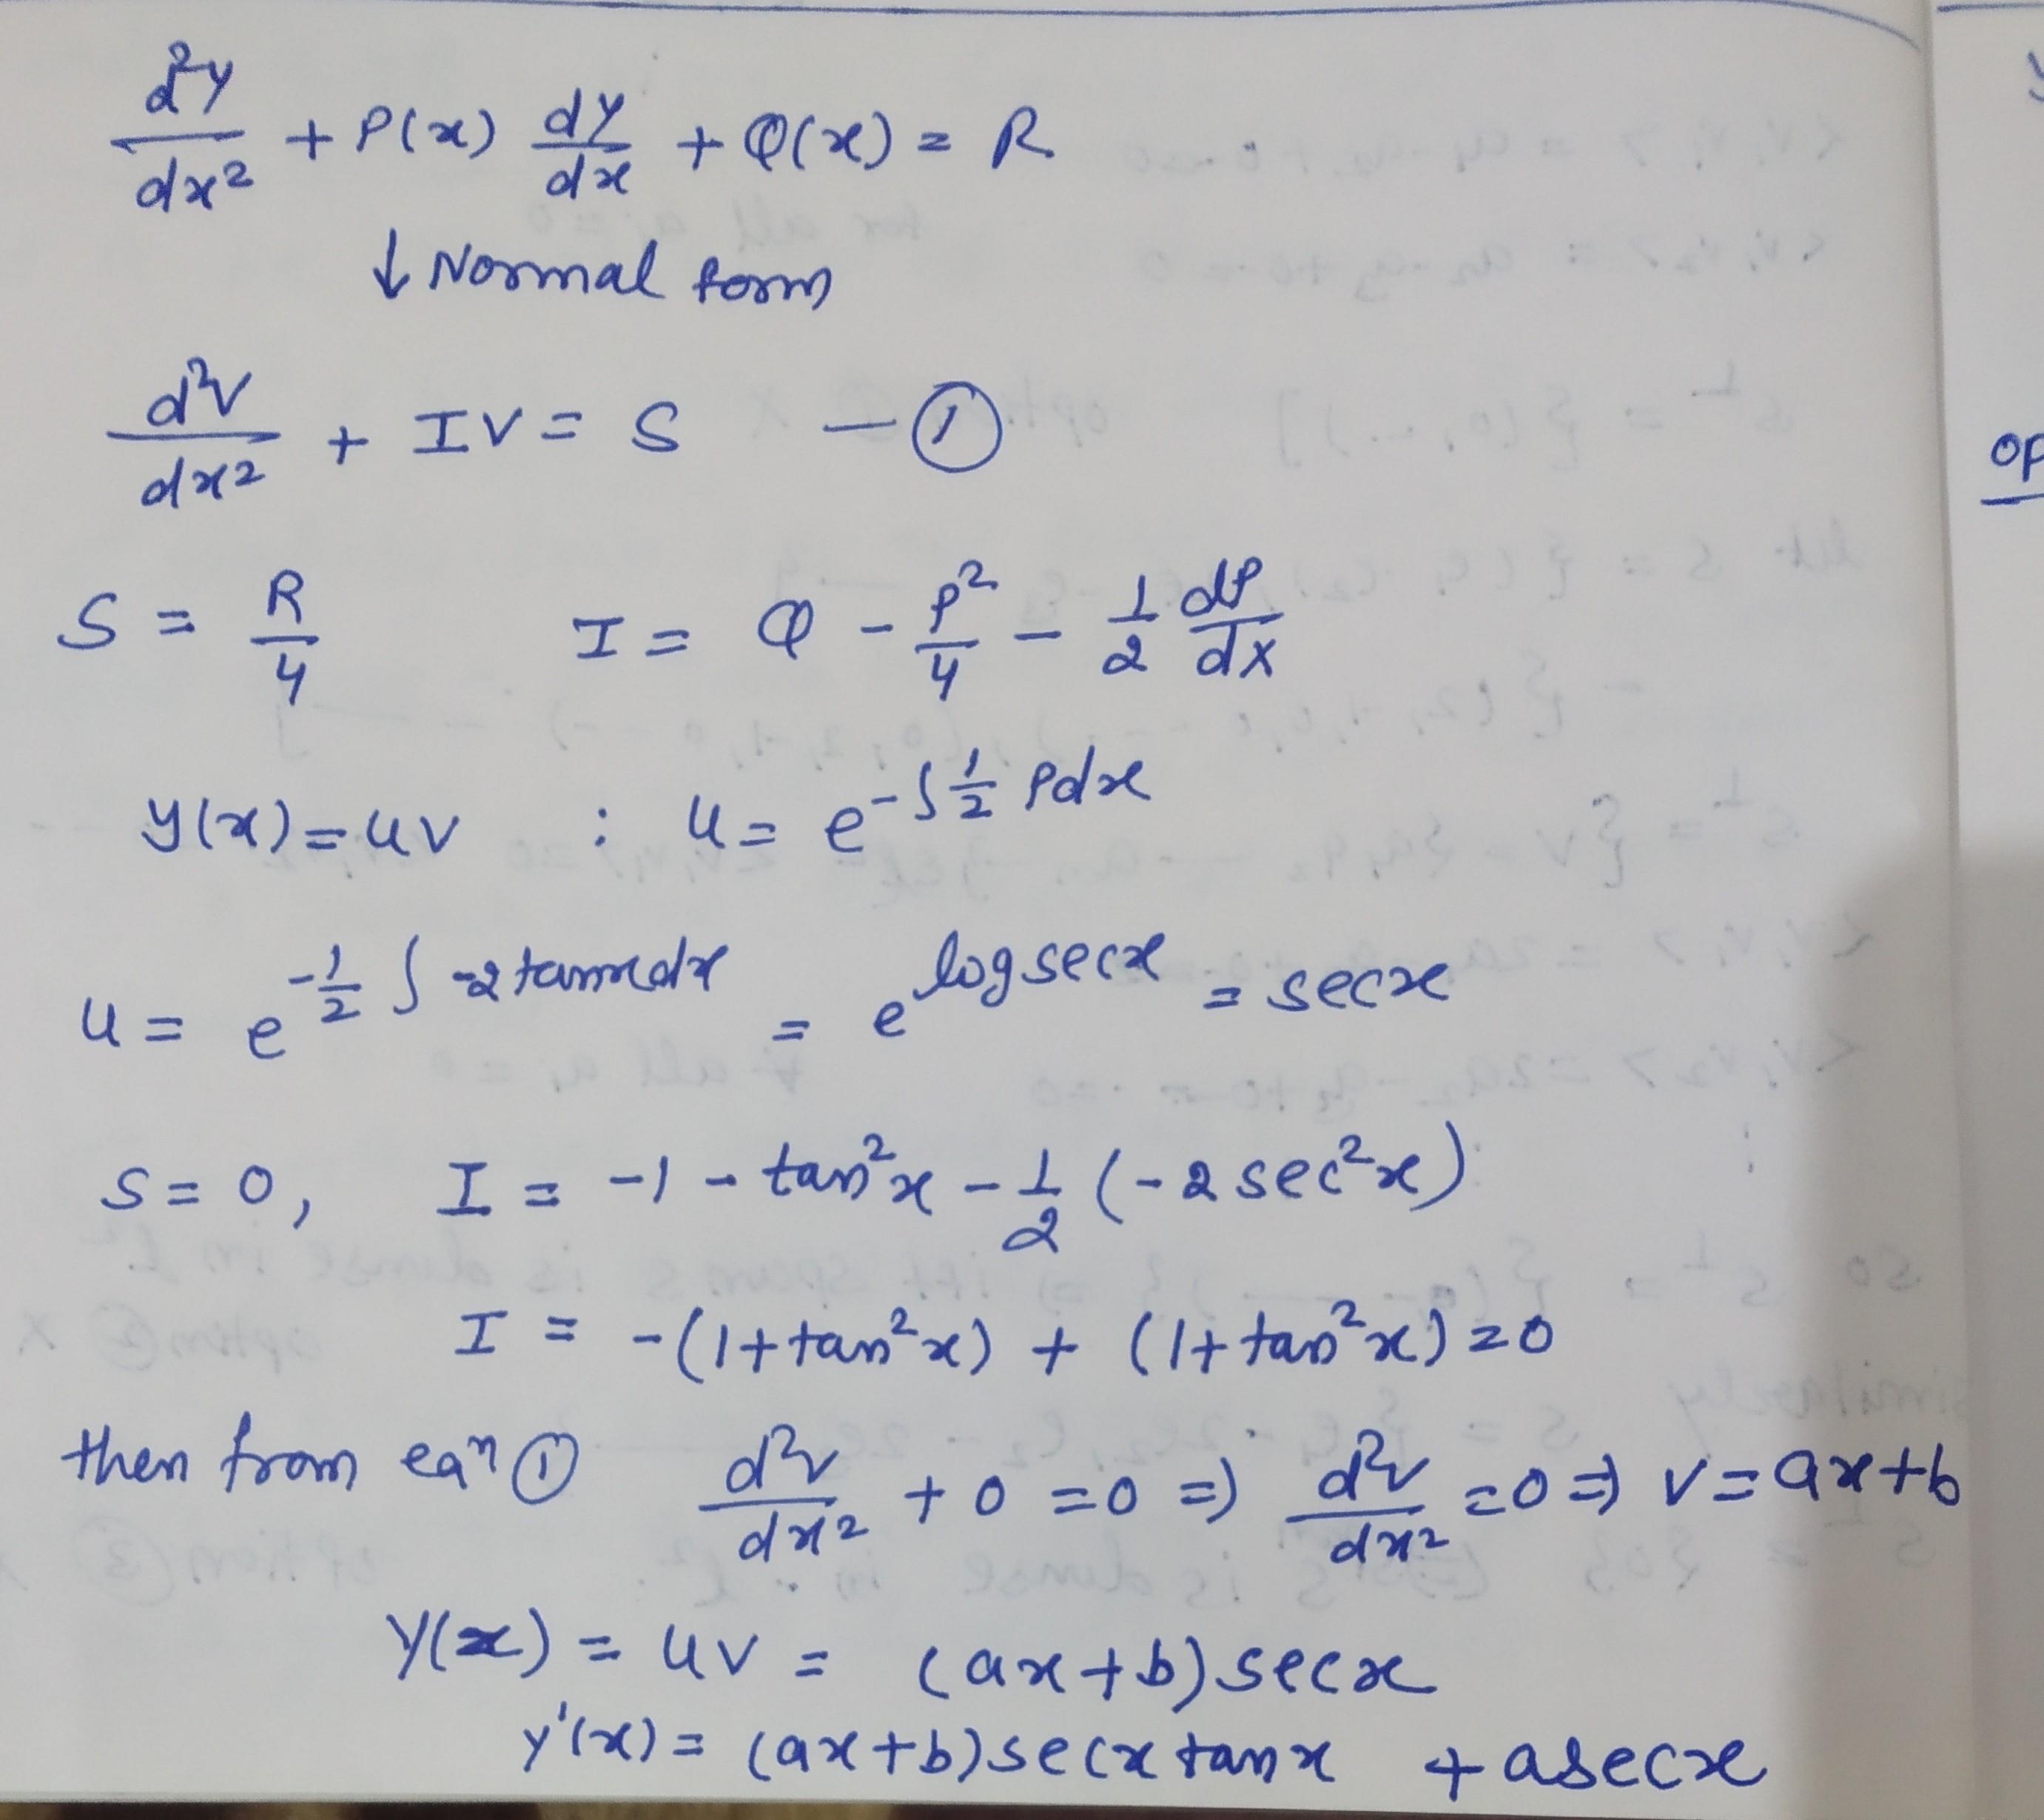 d²y/dx² + P(x) dy/dx + Q(x) = R
↓ Normal form
d²v/dx² + Iv = S — ①
S = R/4    I = Q - P²/4 - 1/2 dP/dx
y(x) = uv : u = e^(-∫ 1/2 Pdx)
u = e^(-1/2 ∫ -2 tanx dx) = e^(log secx) = secx
S = 0, I = -1 - tan²x - 1/2 (-2 sec²x)
I = -(1+tan²x) + (1+tan²x) = 0
then from eqⁿ ① d²v/dx² + 0 = 0 ⇒ d²v/dx² = 0 ⇒ v = ax+b
y(x) = uv = (ax+b) secx
y'(x) = (ax+b) secx tanx + a secx
op